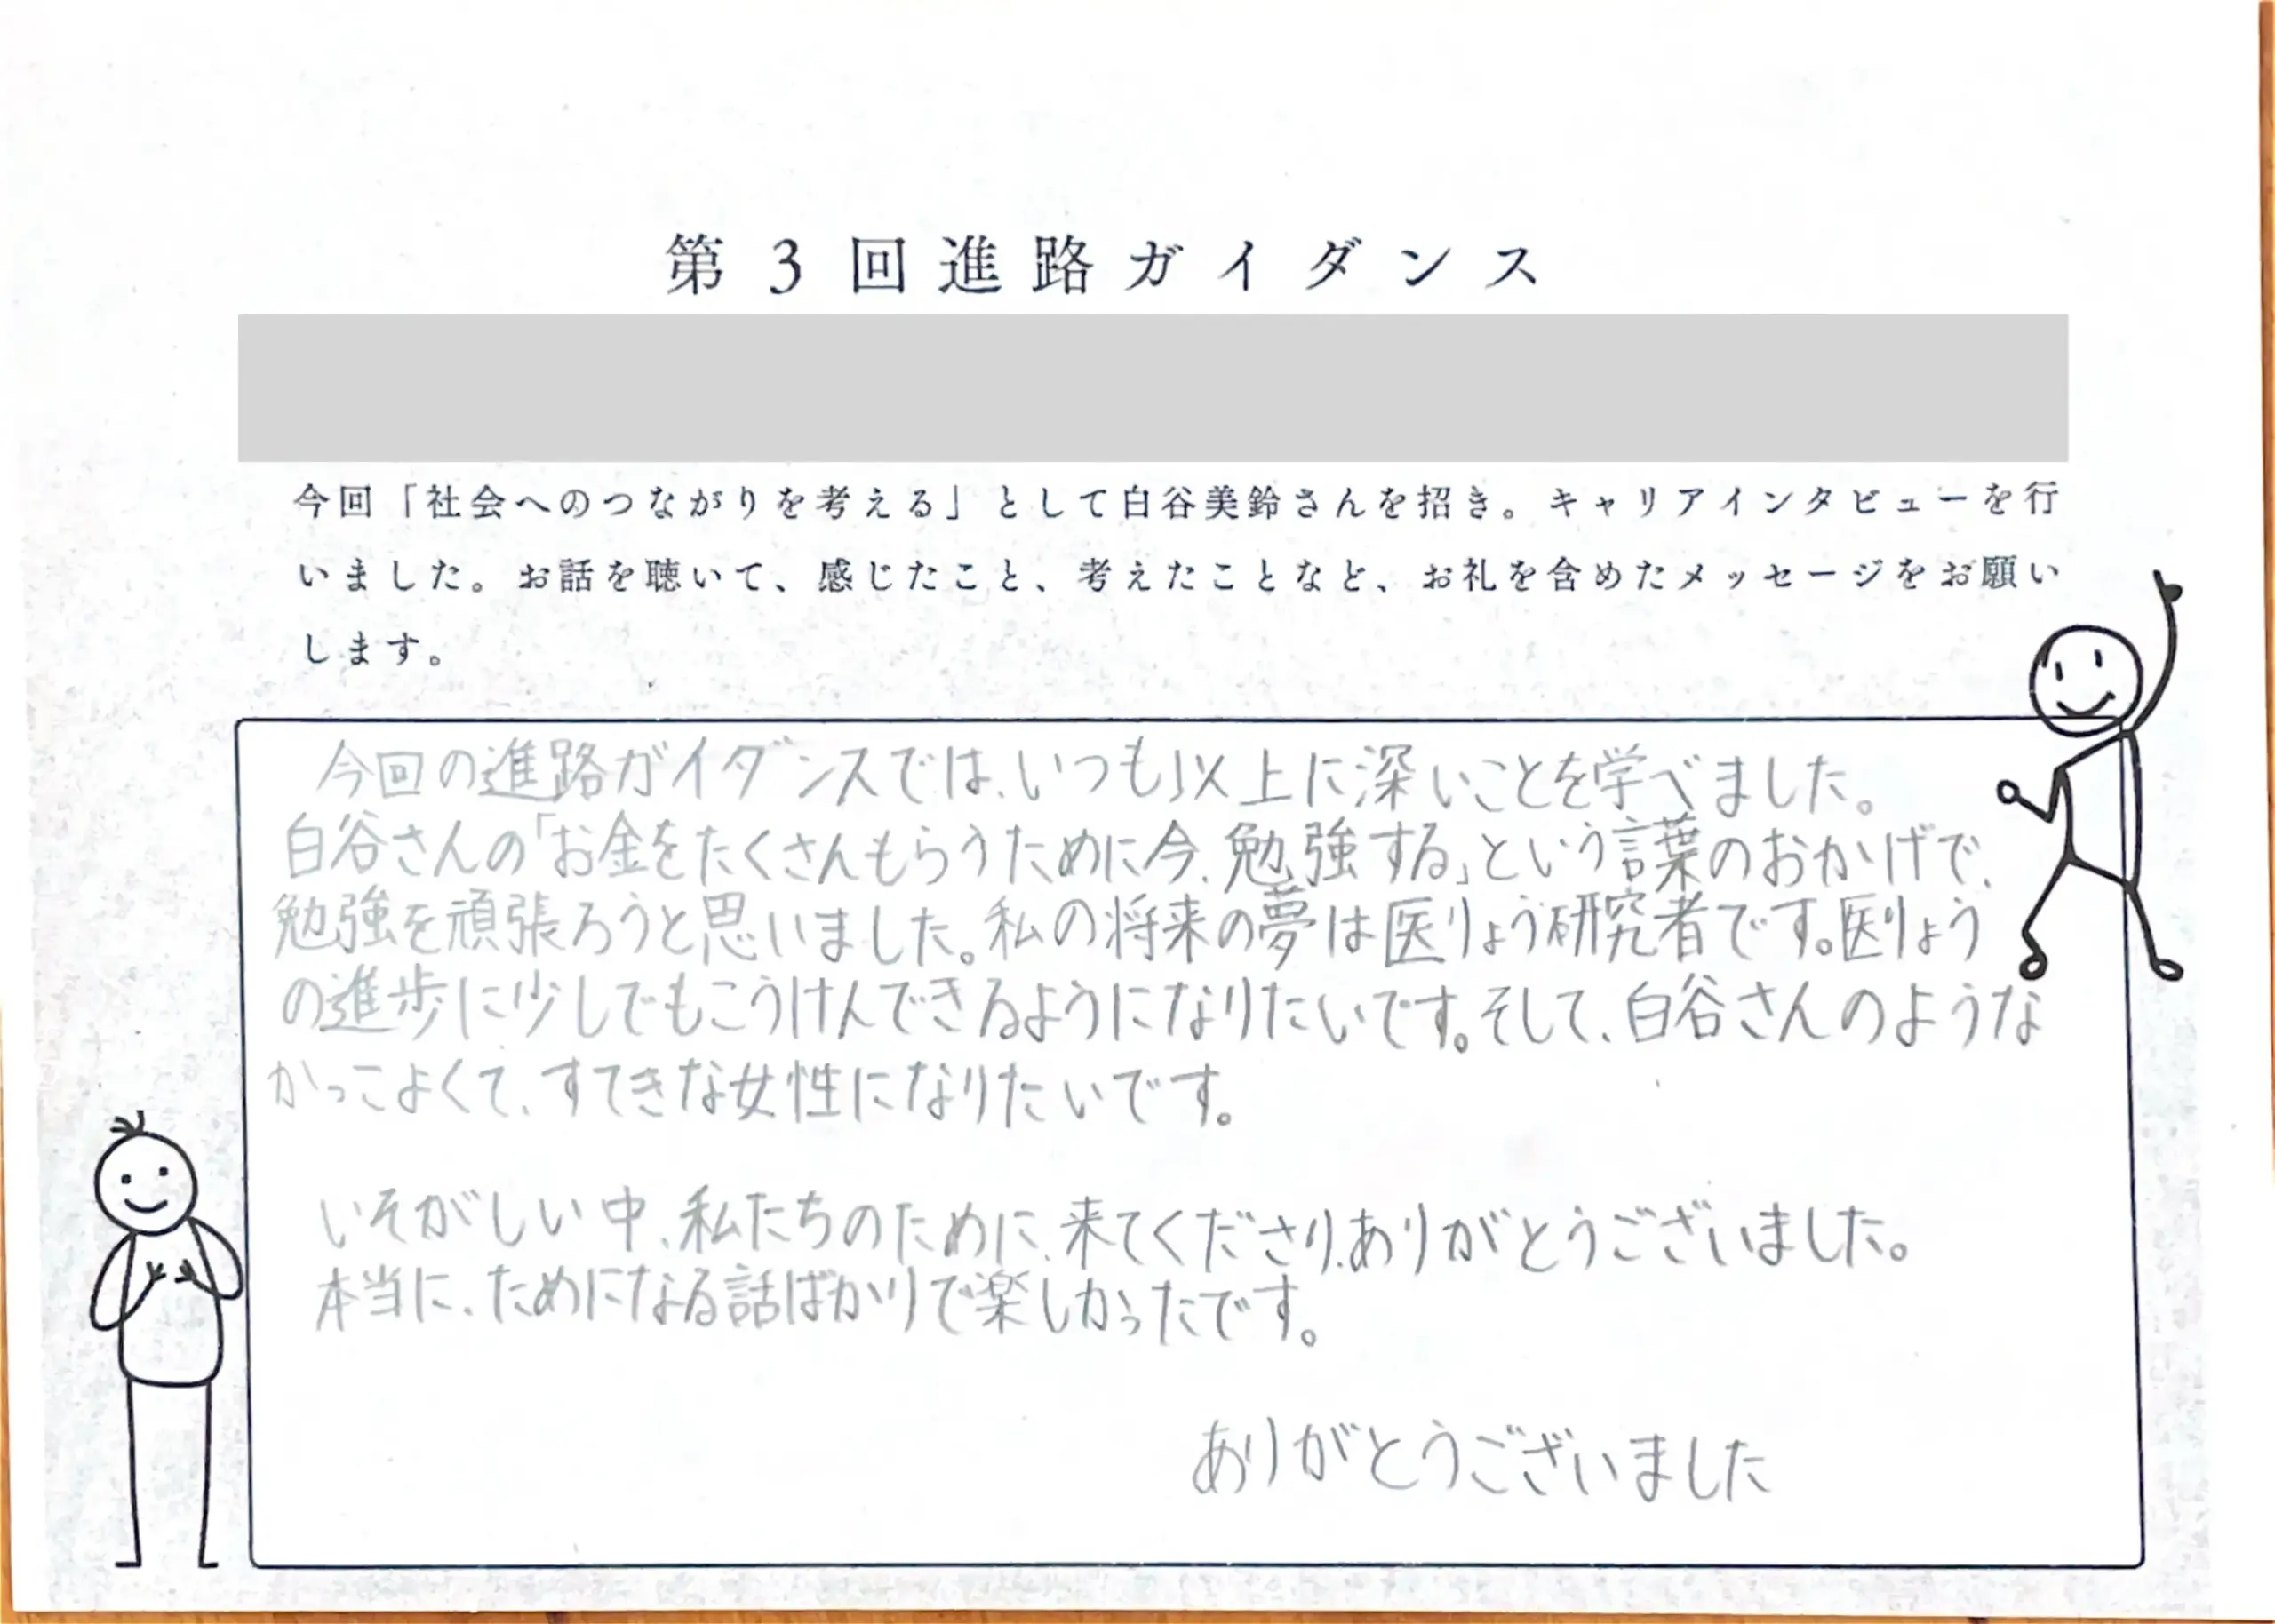 第3回進路ガイダンス
今回「社会へのつながりを考える」として白谷美鈴さんを招き。キャリアインタビューを行
いました。お話を聴いて、感じたこと、考えたことなど、お礼を含めたメッセージをお願い
します。
今回の進路ガイダンスでは、いつも以上に深いことを学べました。
白谷さんの「お金をたくさんもらうために今、勉強する」という言葉のおかげで、
勉強を頑張ろうと思いました。私の将来の夢は医りょう研究者です。医りょう
の進歩に少しでもこうけんできるようになりたいです。そして、白谷さんのような
かっこよくて、すてきな女性になりたいです。
いそがしい中、私たちのために、来てくださり、ありがとうございました。
本当に、ためになる話ばかりで楽しかったです。
ありがとうございました